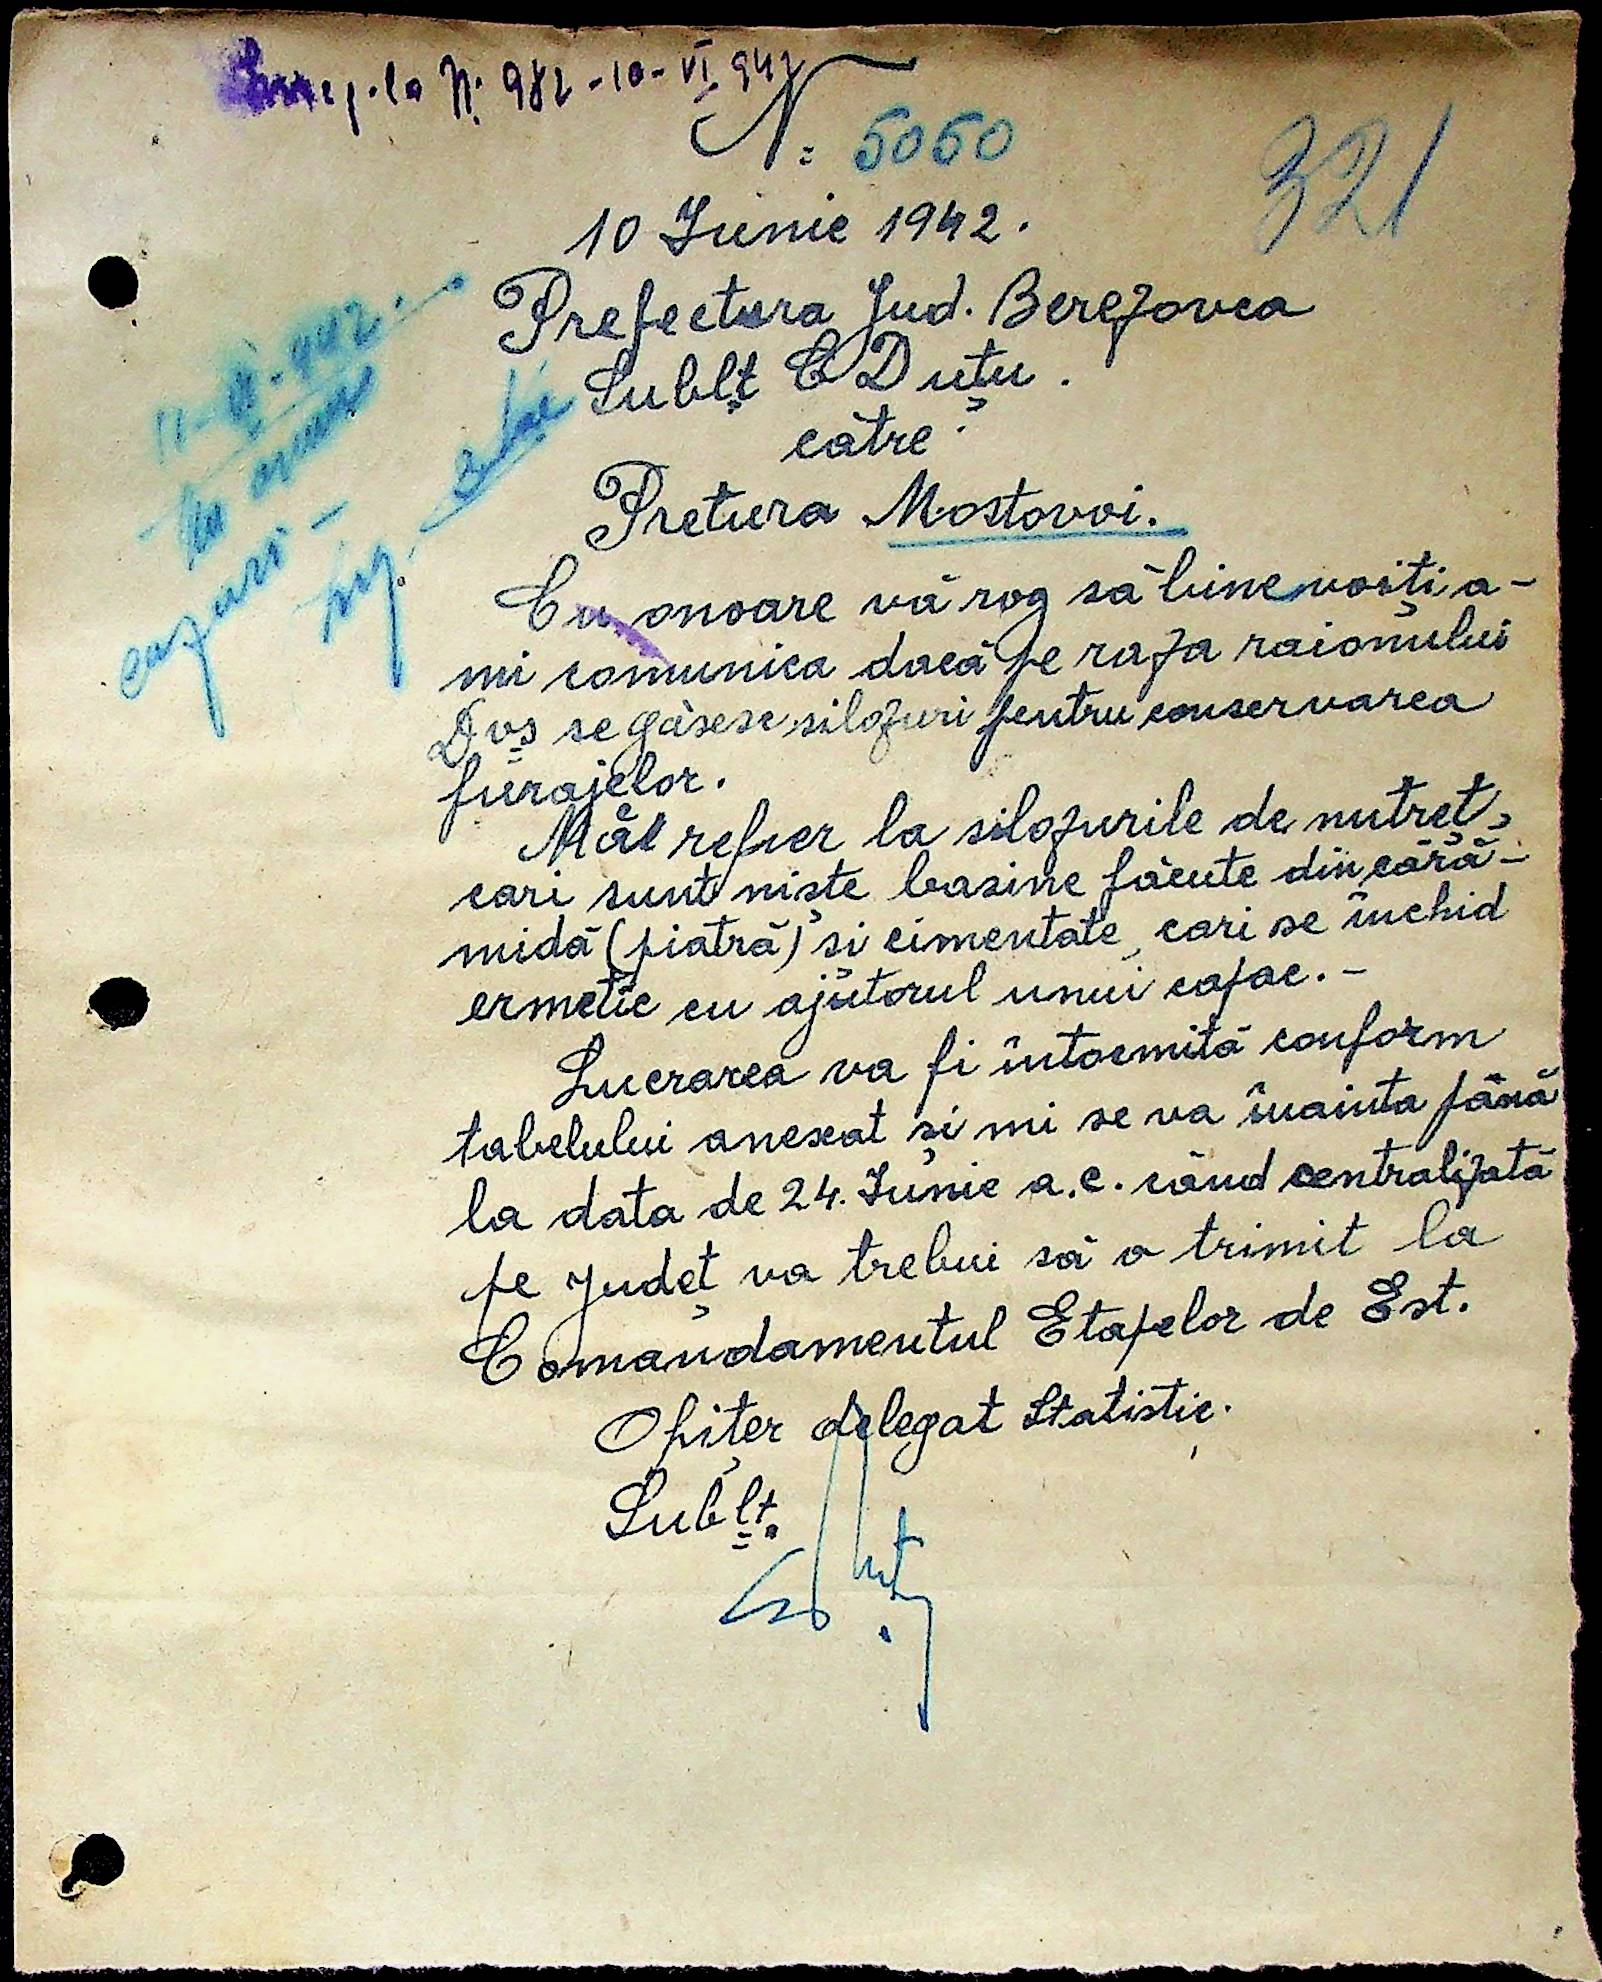 Inreg. la Nr. 982-10-VI 942
N: 5050
321
10 Iunie 1942.
Prefectura Jud. Berezovca
Sublt C Duțu.
către
Pretura Mostovoi.
11-VI-942.
Nu avem
cazuri -
Cu onoare vă rog să binevoiți a-
mi comunica dacă pe raza raionului
Dvs se găsesc silozuri pentru conservarea
furajelor.
Mă refier la silozurile de nutreț,
cari sunt niște basine făcute din cără-
midă (piatră) și cimentate, cari se închid
ermetic cu ajutorul unui capac. -
Lucrarea va fi întocmită conform
tabelului anexat și mi se va înainta până
la data de 24. Iunie a.c. când centralizată
pe județ va trebui să o trimit la
Comandamentul Etapelor de Est.
Ofițer delegat Statistic.
Sublt.